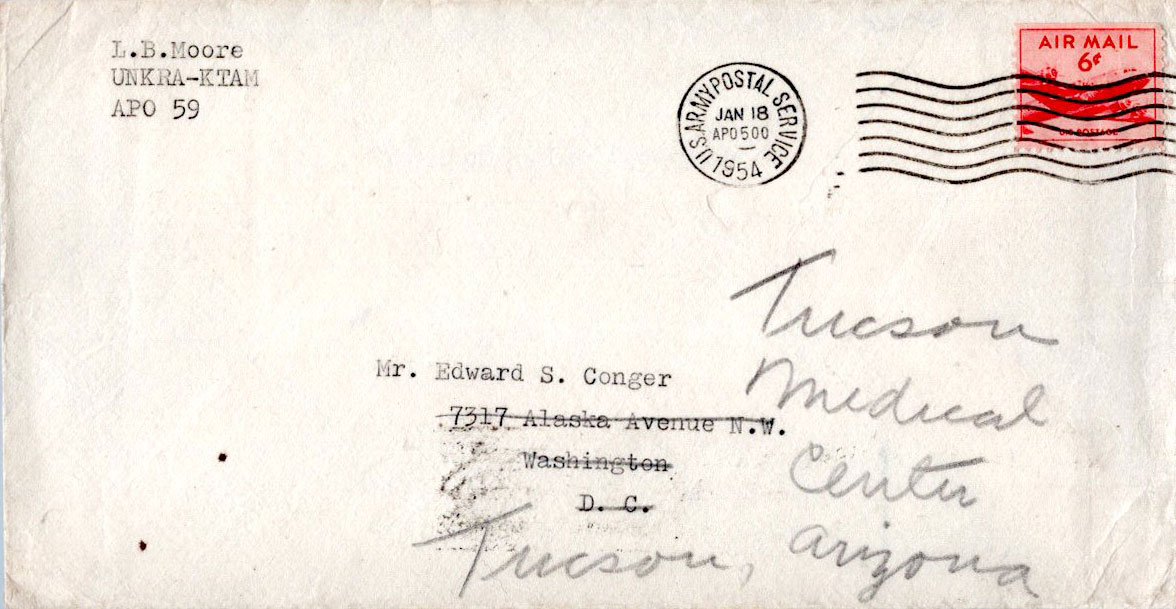 L.B.Moore
UNKRA-KTAM
APO 59
U.S. ARMY POSTAL SERVICE
JAN 18
APO 500
1954
AIR MAIL
6¢
U.S. POSTAGE
Mr. Edward S. Conger
7317 Alaska Avenue N.W.
Washington
D. C.
Tucson
Medical
Center
Tucson, Arizona